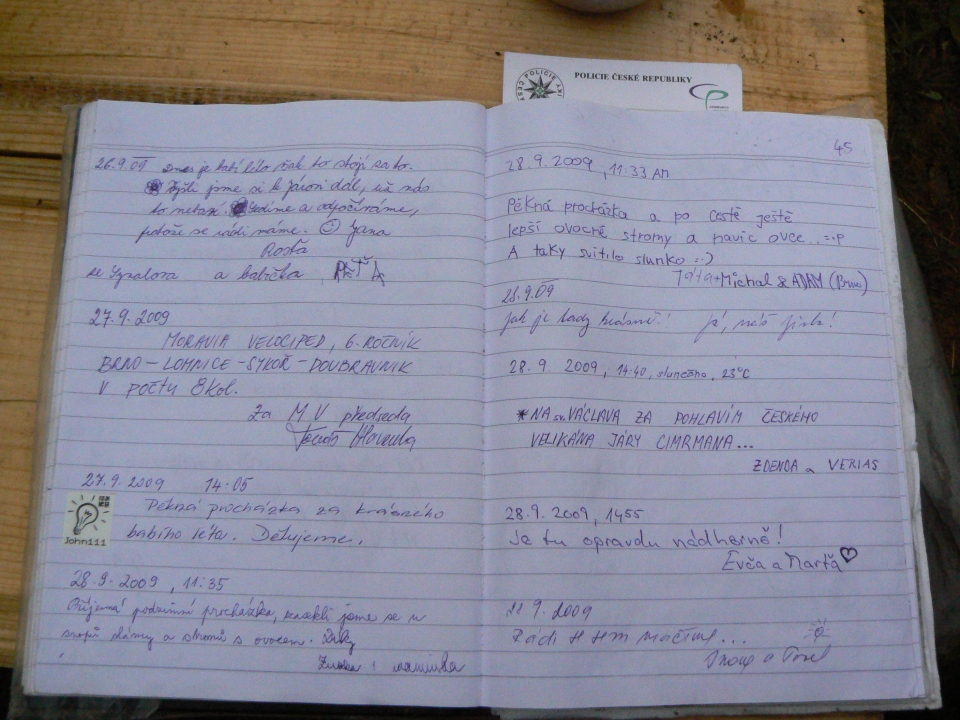 POLICIE ČESKÉ REPUBLIKY
26.9.09 Dnes je babí léto tak to stojí za to.
jsme si k Járovi dál, už nás
to nebaví. Sedíme a odpočíváme,
se rádi máme. Jana
Rosťa
a babička
27.9.2009
MORAVIA VELOCIPED, 6. ROČNÍK
BRNO-LOMNICE-SÝKOŘ-DOUBRAVNÍK
V POČTU 8 kol.
Za M V předseda
27.9.2009 14:05
Pěkná procházka za krásného
babího léta. Děkujeme.
John111
28.9.2009, 11:35
Příjemná podzimní procházka, jsme se u
dámy a stromů s ovocem. Díky
Zuzka i maminka
45
28.9.2009, 11:33 AM
Pěkná procházka a po cestě ještě
lepší ovocné stromy a navíc ovce..:=P
A taky svítilo slunko :-)
Táta+Michal & ADAM (Brno)
28.9.09
Jak je tady krásně!
28.9. 2009, 14:40, slunečno, 23°C
*NA SV. VÁCLAVA ZA POHLAVÍM ČESKÉHO
VELIKÁNA JÁRY CIMRMANA...
ZDENDA a VERIAS
28.9.2009, 1455
Je tu opravdu nádherně!
Evča a Marťa
9.2009
a Pavel